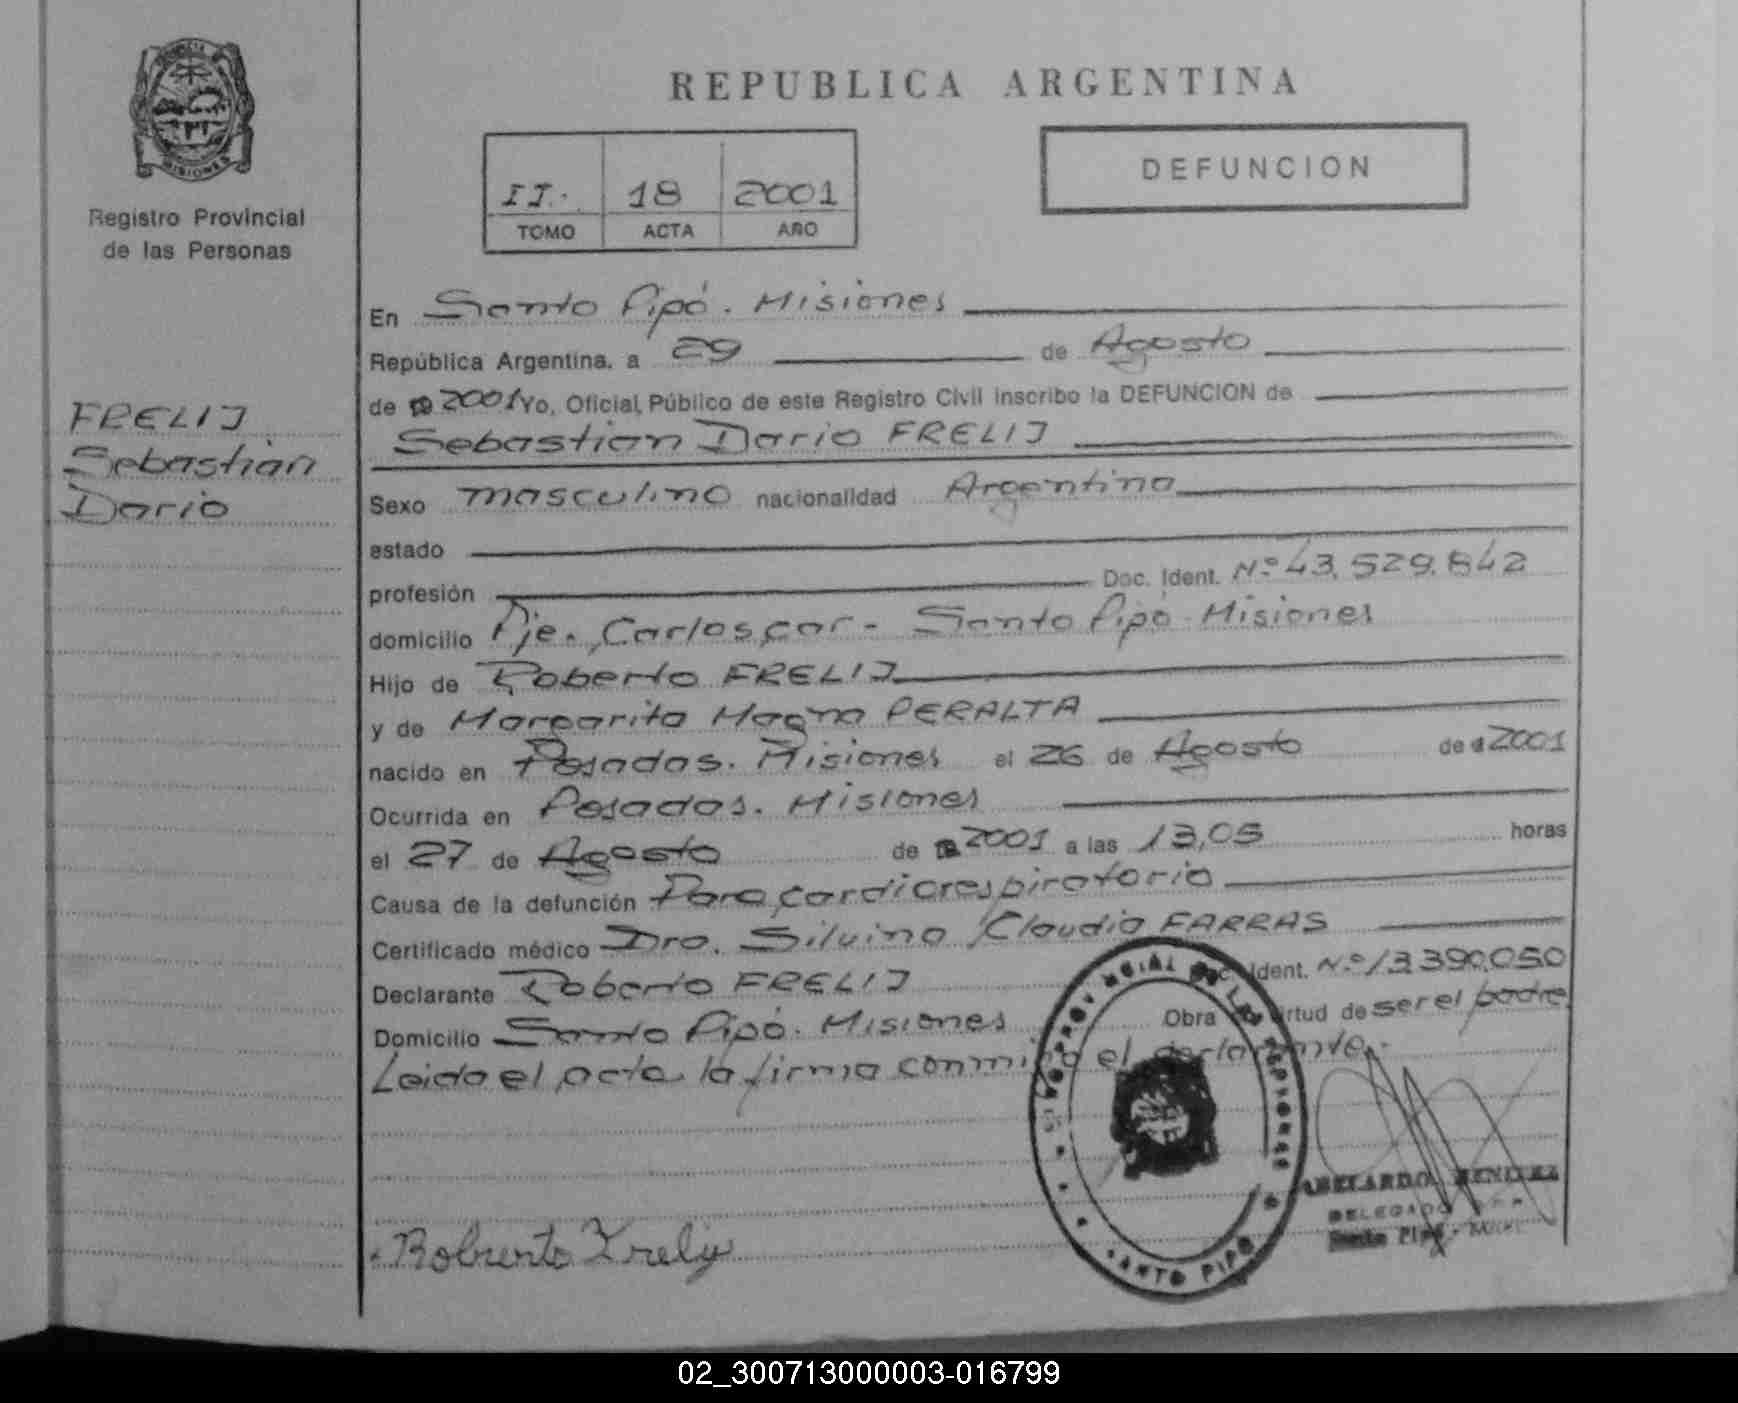 REPUBLICA ARGENTINA
PROVINCIA DE
MISIONES
Registro Provincial
de las Personas
II. 18 2001
TOMO ACTA AÑO
DEFUNCION
FRELIJ
Sebastian
Dario
En Santo Pipó. Misiones
República Argentina, a 29 de Agosto
de 2001 Yo, Oficial Público de este Registro Civil inscribo la DEFUNCION de
Sebastian Dario FRELIJ
Sexo masculino nacionalidad Argentina
estado
profesión Doc. Ident. Nº 43.529.842
domicilio Pje. Carloscar - Santo Pipó - Misiones
Hijo de Roberto FRELIJ
y de Margarita Magna PERALTA
nacido en Posadas. Misiones el 26 de Agosto de 2001
Ocurrida en Posadas. Misiones
el 27 de Agosto de 2001 a las 13,05 horas
Causa de la defunción Paro cardiorespiratorio
Certificado médico Dra. Silvina Claudia FARRAS
Declarante Roberto FRELIJ Doc. Ident. Nº 13.390.050
Domicilio Santo Pipó. Misiones Obra virtud de ser el padre
Leida el acta la firma conmigo el declarante.
SANTO PIPO
ABELARDO BENITEZ
DELEGADO
Santo Pipó -
Roberto Frelij
02_300713000003-016799